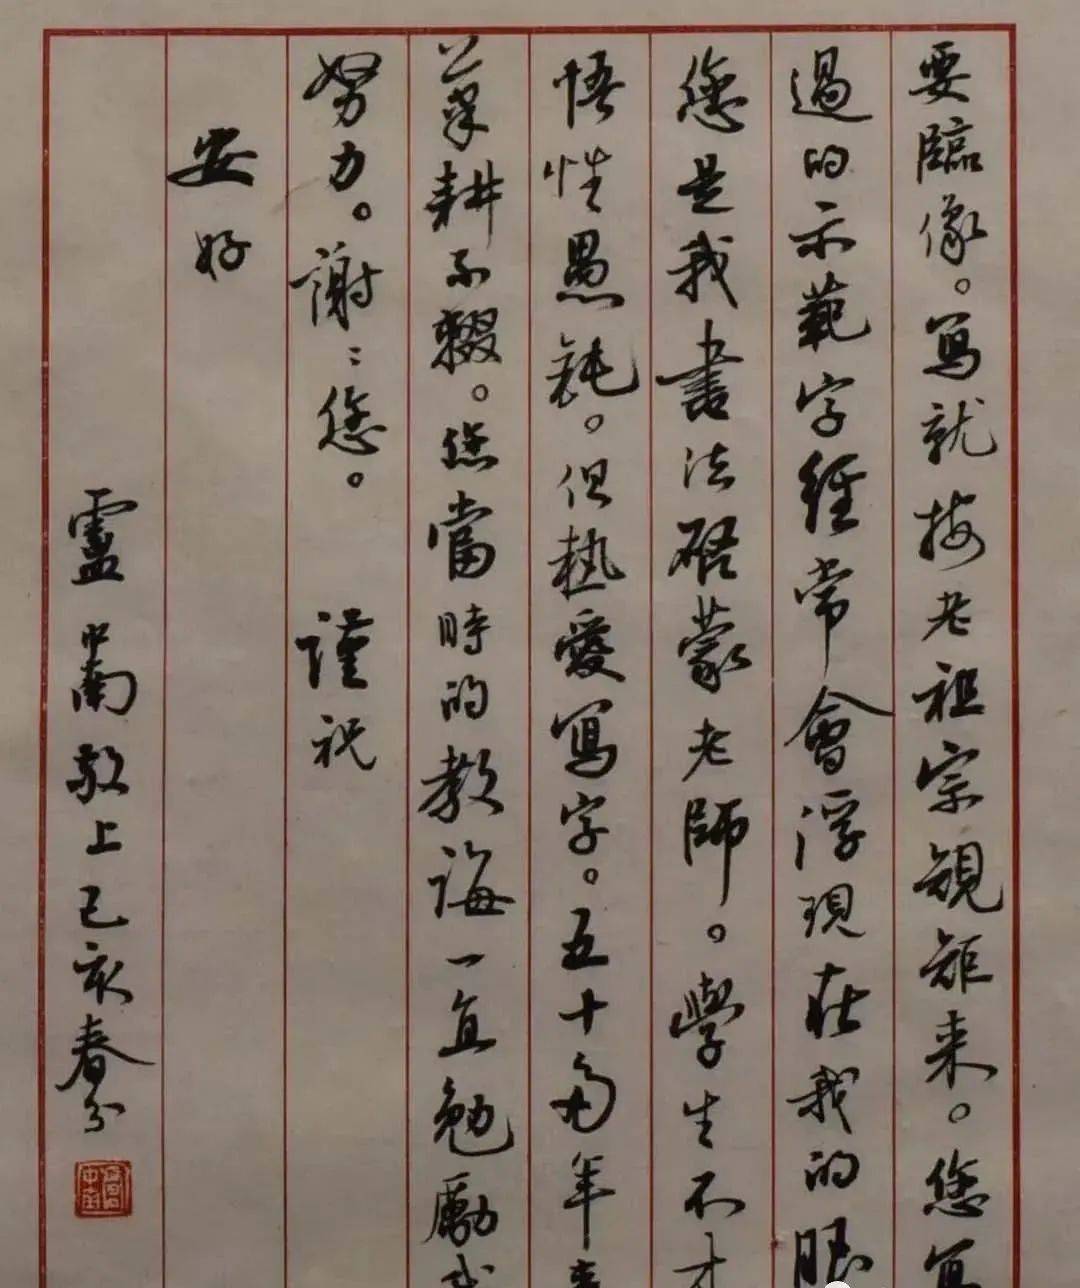 要臨像。寫就按老祖宗規矩来。您寫
過的示範字經常會浮現在我的眼
您是我書法啓蒙老師。學生不才
悟性愚鈍。但熱愛寫字。五十多年来
筆耕不輟。您當時的教誨一直勉勵我
努力。謝〻您。 謹祝
安好
盧中南敬上己亥春分